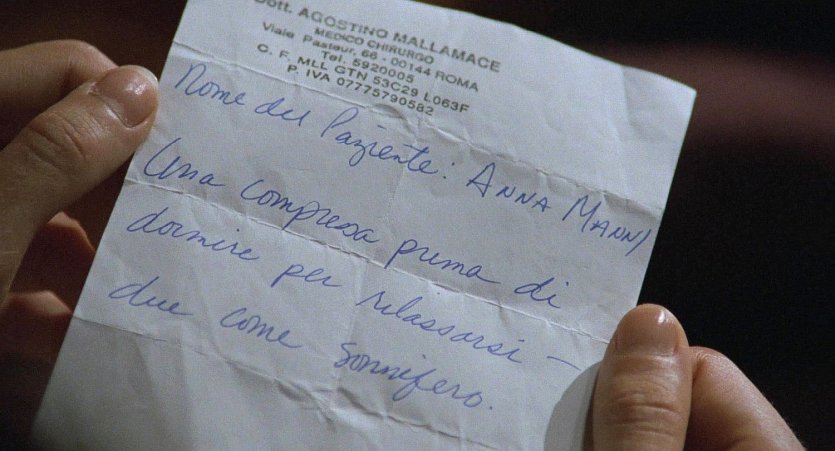 Dott. AGOSTINO MALLAMACE
MEDICO CHIRURGO
Viale Pasteur, 66 - 00144 ROMA
Tel. 5920005
C. F. MLL GTN 53C29 L063F
P. IVA 07775790582
Nome del Paziente: ANNA MANNI
Una compressa prima di
dormire per rilassarsi –
due come sonnifero.